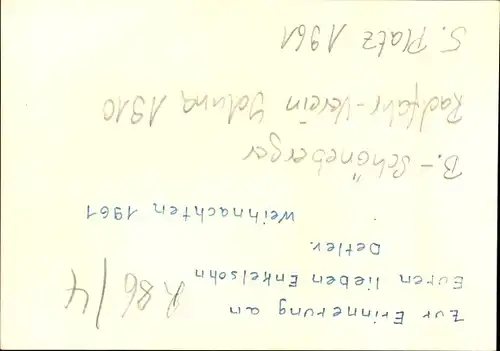 Zur Erinnerung an
Euren lieben Enkelsohn
Detlev.
Weihnachten 1961
B.-Schöneberger
Radfahr-Verein Iduna 1910
5. Platz 1961
R 86/4